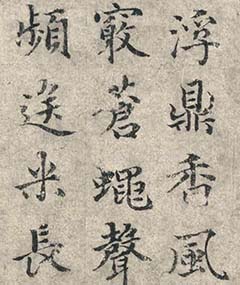 浮鼎香風
竅蒼蠅聲
頻送米長